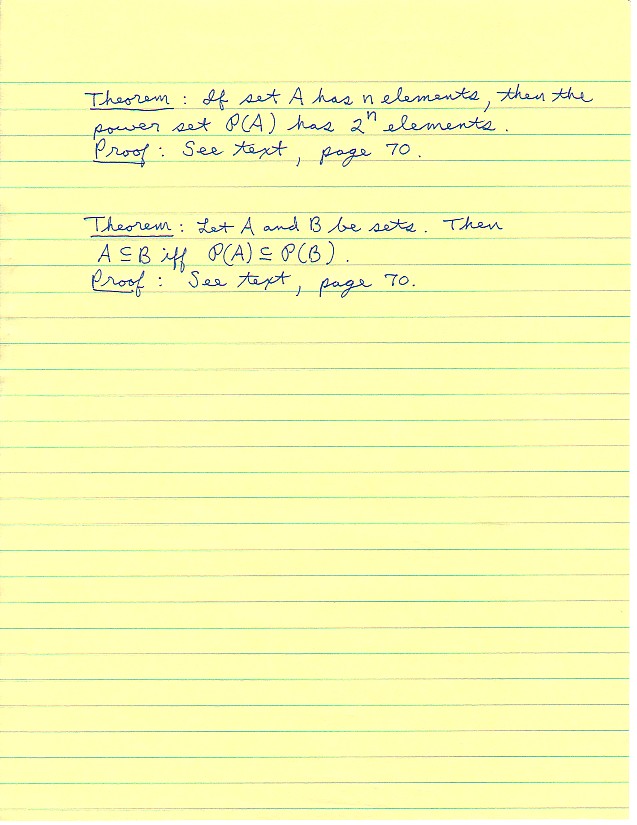 Theorem : If set A has n elements, then the
power set P(A) has 2ⁿ elements.
Proof : See text, page 70.
Theorem : Let A and B be sets. Then
A ⊆ B iff P(A) ⊆ P(B).
Proof : See text, page 70.